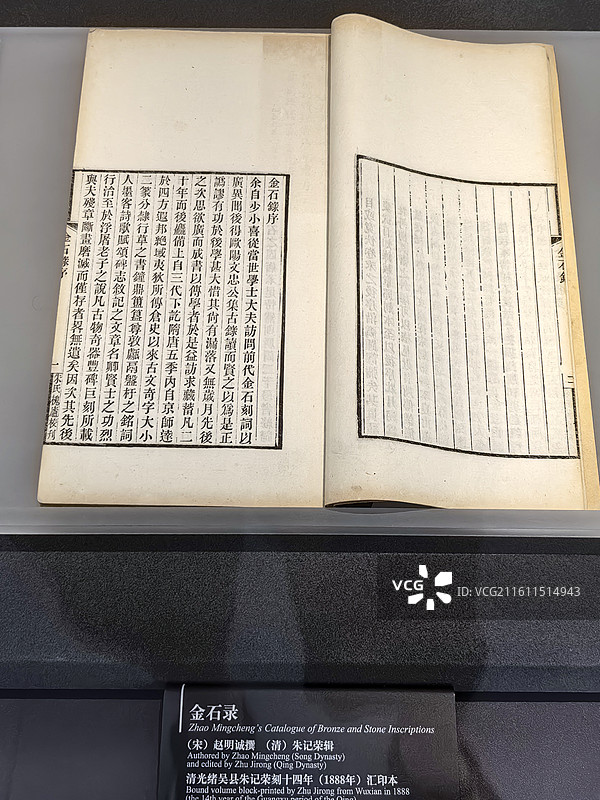 金石錄序
余自少小喜從當世學士大夫訪問前代金石刻詞以
廣異聞後得歐陽文忠公集古錄讀而賢之以為是正
譌謬有功於後學甚大惜其尚有漏落又無歲月先後
之次思欲廣而成書以傳學者於是益訪求藏蓄凡二
十年而後麤備上自三代下訖隋唐五季內自京師達
於四方遐邦絕域夷狄所傳倉史以來古文奇字大小
二篆分隸行草之書鐘鼎簠簋尊敦甗鬲盤杅之銘詞
人墨客詩歌賦頌碑志敘記之文章名卿賢士之功烈
行治至於浮屠老子之說凡古物奇器豐碑巨刻所載
與夫殘章斷畫磨滅而僅存者畧無遺矣因次其先後
金石錄序
一
朱氏槐廬校刊
金石錄
二
VCG
ID: VCG211611514943
金石录
Zhao Mingcheng's Catalogue of Bronze and Stone Inscriptions
（宋）赵明诚撰 （清）朱记荣辑
Authored by Zhao Mingcheng (Song Dynasty)
and edited by Zhu Jirong (Qing Dynasty)
清光绪吴县朱记荣刻十四年（1888年）汇印本
Bound volume block-printed by Zhu Jirong from Wuxian in 1888
(the 14th year of the Guangxu period of the Qing)